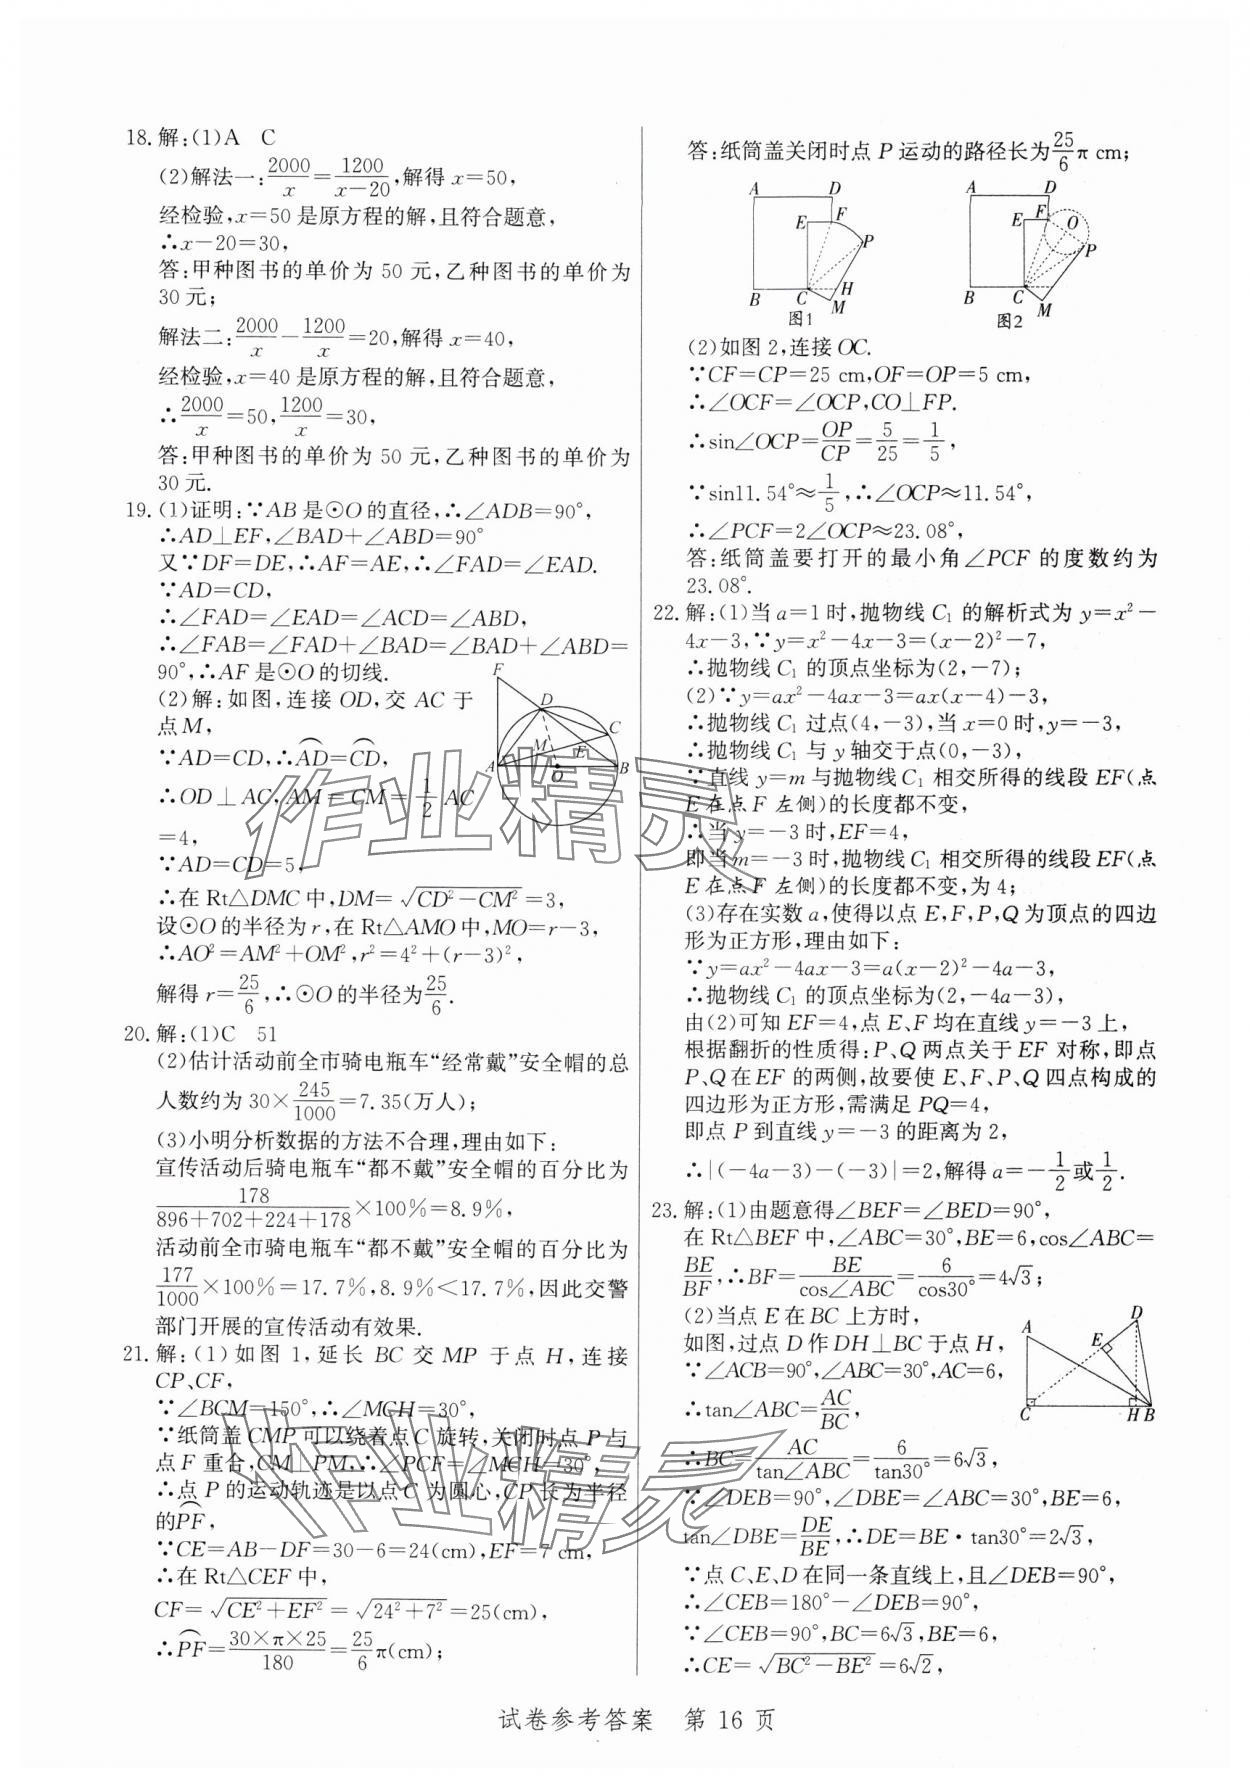 18.解:(1)A C
(2)解法一:2000/x=1200/(x-20),解得 x=50,
经检验,x=50 是原方程的解,且符合题意,
∴x-20=30,
答:甲种图书的单价为 50 元,乙种图书的单价为
30 元;
解法二:2000/x-1200/x=20,解得 x=40,
经检验,x=40 是原方程的解,且符合题意,
∴2000/x=50,1200/x=30,
答:甲种图书的单价为 50 元,乙种图书的单价为
30 元.
19.(1)证明:∵AB 是⊙O 的直径,∴∠ADB=90°,
∴AD⊥EF,∠BAD+∠ABD=90°
又∵DF=DE,∴AF=AE,∴∠FAD=∠EAD.
∵AD=CD,
∴∠FAD=∠EAD=∠ACD=∠ABD,
∴∠FAB=∠FAD+∠BAD=∠BAD+∠ABD=
90°,∴AF 是⊙O 的切线.
(2)解:如图,连接 OD,交 AC 于
点 M,
∵AD=CD,∴⌒AD=⌒CD,
∴OD⊥AC,AM=CM=1/2 AC
=4,
∵AD=CD=5,
∴在 Rt△DMC 中,DM=√(CD²-CM²)=3,
设⊙O 的半径为 r,在 Rt△AMO 中,MO=r-3,
∴AO²=AM²+OM²,r²=4²+(r-3)²,
解得 r=25/6,∴⊙O 的半径为25/6.
F D C M E A O B
20.解:(1)C 51
(2)估计活动前全市骑电瓶车“经常戴”安全帽的总
人数约为 30×245/1000=7.35(万人);
(3)小明分析数据的方法不合理,理由如下:
宣传活动后骑电瓶车“都不戴”安全帽的百分比为
178/(896+702+224+178)×100%=8.9%,
活动前全市骑电瓶车“都不戴”安全帽的百分比为
177/1000×100%=17.7%,8.9%<17.7%,因此交警
部门开展的宣传活动有效果.
21.解:(1)如图 1,延长 BC 交 MP 于点 H,连接
CP、CF,
∵∠BCM=150°,∴∠MCH=30°,
∵纸筒盖 CMP 可以绕着点 C 旋转,关闭时点 P 与
点 F 重合,CM⊥PM,∴∠PCF=∠MCH=30°,
∴点 P 的运动轨迹是以点 C 为圆心,CP 长为半径
的⌒PF,
∵CE=AB-DF=30-6=24(cm),EF=7 cm,
∴在 Rt△CEF 中,
CF=√(CE²+EF²)=√(24²+7²)=25(cm),
∴⌒PF=30×π×25/180=25/6π(cm);
答:纸筒盖关闭时点 P 运动的路径长为25/6π cm;
A D E F P B C H M
图1
A D E F O P B C M
图2
(2)如图 2,连接 OC.
∵CF=CP=25 cm,OF=OP=5 cm,
∴∠OCF=∠OCP,CO⊥FP.
∴sin∠OCP=OP/CP=5/25=1/5,
∵sin11.54°≈1/5,∴∠OCP≈11.54°,
∴∠PCF=2∠OCP≈23.08°,
答:纸筒盖要打开的最小角∠PCF 的度数约为
23.08°.
22.解:(1)当 a=1 时,抛物线 C₁ 的解析式为 y=x²-
4x-3,∵y=x²-4x-3=(x-2)²-7,
∴抛物线 C₁ 的顶点坐标为(2,-7);
(2)∵y=ax²-4ax-3=ax(x-4)-3,
∴抛物线 C₁ 过点(4,-3),当 x=0 时,y=-3,
∴抛物线 C₁ 与 y 轴交于点(0,-3),
∵直线 y=m 与抛物线 C₁ 相交所得的线段 EF(点
E 在点 F 左侧)的长度都不变,
∴当 y=-3 时,EF=4,
即当m=-3 时,抛物线 C₁ 相交所得的线段 EF(点
E 在点 F 左侧)的长度都不变,为 4;
(3)存在实数 a,使得以点 E,F,P,Q 为顶点的四边
形为正方形,理由如下:
∵y=ax²-4ax-3=a(x-2)²-4a-3,
∴抛物线 C₁ 的顶点坐标为(2,-4a-3),
由(2)可知 EF=4,点 E、F 均在直线 y=-3 上,
根据翻折的性质得:P、Q 两点关于 EF 对称,即点
P、Q 在 EF 的两侧,故要使 E、F、P、Q 四点构成的
四边形为正方形,需满足 PQ=4,
即点 P 到直线 y=-3 的距离为 2,
∴|(-4a-3)-(-3)|=2,解得 a=-1/2或1/2.
23.解:(1)由题意得∠BEF=∠BED=90°,
在 Rt△BEF 中,∠ABC=30°,BE=6,cos∠ABC=
BE/BF,∴BF=BE/cos∠ABC=6/cos30°=4√3;
(2)当点 E 在 BC 上方时,
如图,过点 D 作 DH⊥BC 于点 H,
∵∠ACB=90°,∠ABC=30°,AC=6,
∴tan∠ABC=AC/BC,
∴BC=AC/tan∠ABC=6/tan30°=6√3,
∵∠DEB=90°,∠DBE=∠ABC=30°,BE=6,
tan∠DBE=DE/BE,∴DE=BE·tan30°=2√3,
∵点 C、E、D 在同一条直线上,且∠DEB=90°,
∴∠CEB=180°-∠DEB=90°,
∵∠CEB=90°,BC=6√3,BE=6,
∴CE=√(BC²-BE²)=6√2,
A E D C H B
作业精灵
作业精灵
试卷参考答案 第 16 页